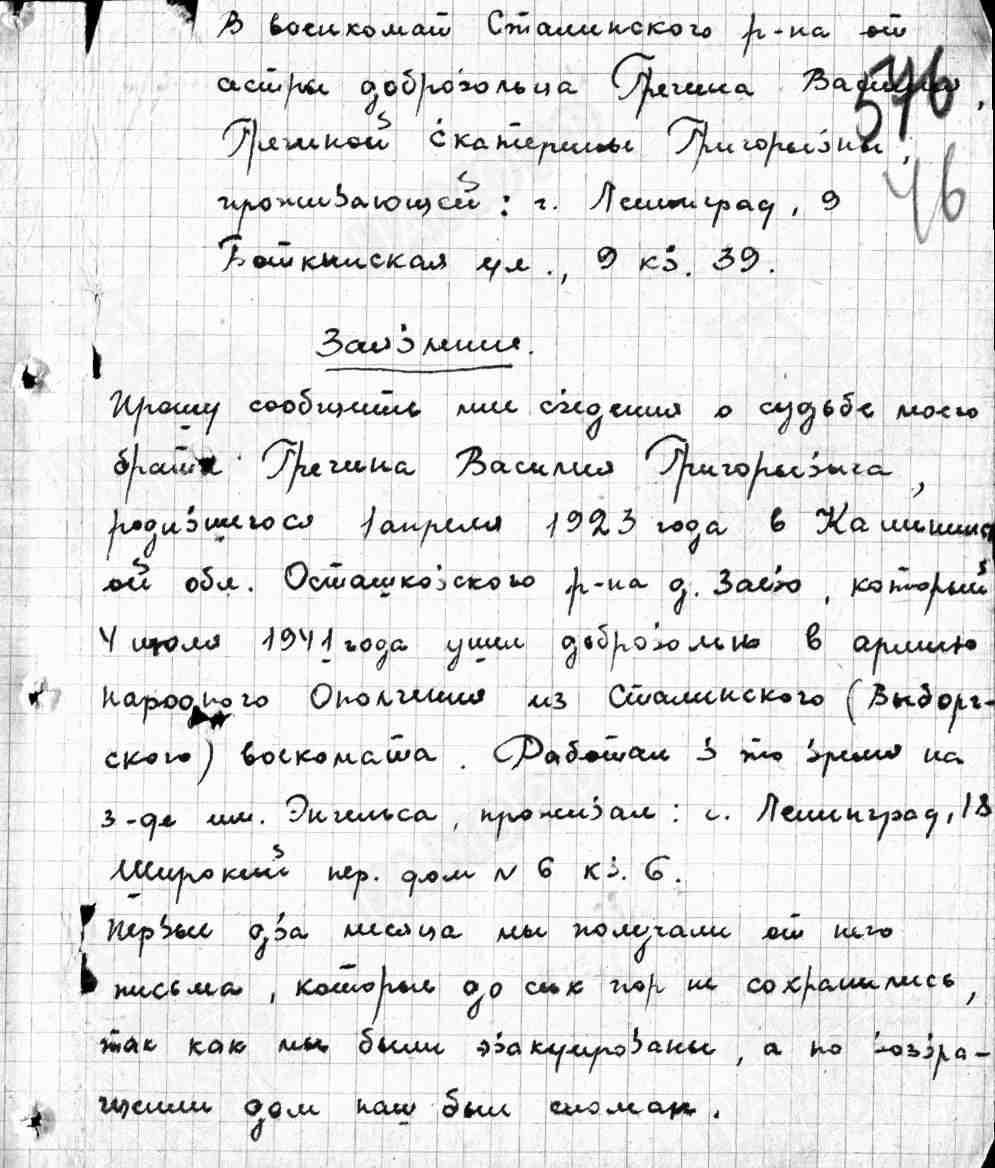 В военкомат Сталинского р-на от
сестры добровольца Гречина Василия,
576
Гречиной Екатерины Григорьевны,
46
проживающей: г. Ленинград, 9
Боткинская ул., 9 кв. 39.
Заявление.
Прошу сообщить мне сведения о судьбе моего
брата Гречина Василия Григорьевича,
родившегося 1 апреля 1923 года в Калининск
ой обл. Осташковского р-на д. Заево, который
4 июля 1941 года ушел добровольно в армию
народного Ополчения из Сталинского (Выборг-
ского) военкомата. Работал в то время на
з-де им. Энгельса, проживал: г. Ленинград, 18
Широкий пер. дом N 6 кв. 6.
Первые два месяца мы получали от него
письма, которые до сих пор не сохранились,
так как мы были эвакуированы, а по возвра-
щении дом наш был сломан.